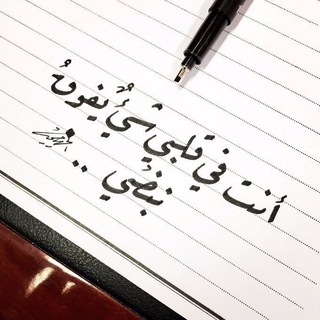 أنت في قلبي شيُ يفوقُ
نبضي ..